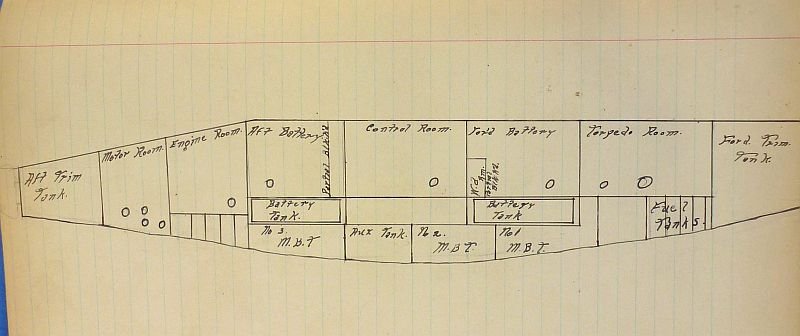 Aft Trim
Tank.
Motor Room.
Engine Room.
Aft Battery
Control Room.
For'd Battery
Torpedo Room.
Ford. Trim.
Tank.
Battery
Tank.
Battery
Tank
Fuel
Tanks.
No 3.
M.B.T
Aux Tank.
No 2.
M.B.T.
No 1
M.B.T.